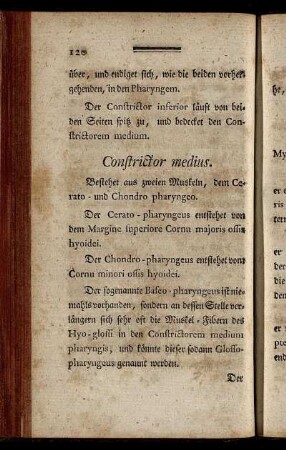 120
über, und endiget sich, wie die beiden vorher-
gehenden, in den Pharyngem.
Der Constrictor inferior läuft von bei-
den Seiten spitz zu, und bedecket den Con-
strictorem medium.
Constrictor medius.
Bestehet aus zweien Muskeln, dem Ce-
rato- und Chondro pharyngeo.
Der Cerato-pharyngeus entstehet von
dem Margine superiore Cornu majoris ossis
hyoidei.
Der Chondro-pharyngeus entstehet von
Cornu minori ossis hyoidei.
Der sogenannte Basco-pharyngeus ist nie-
mahls vorhanden, sondern an dessen Stelle ver-
längern sich sehr oft die Muskel-Fibern des
Hyo-glossi in den Constrictorem medium
pharyngis; und könnte dieser sodann Glosso-
pharyngeus genannt werden.
Der